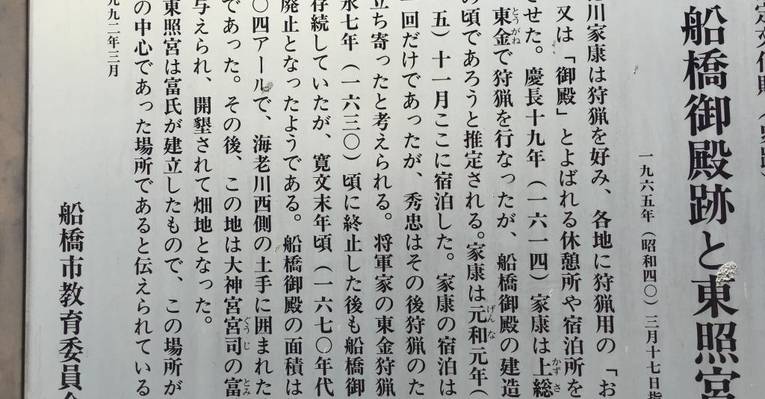 定文化財（史跡）
船橋御殿跡と東照宮
一九六五年（昭和四〇）三月十七日指
川家康は狩猟を好み、各地に狩猟用の「お
又は「御殿」とよばれる休憩所や宿泊所を
させた。慶長十九年（一六一四）家康は上総
東金で狩猟を行なったが、船橋御殿の建造
の頃であろうと推定される。家康は元和元年（
五）十一月ここに宿泊した。家康の宿泊は
一回だけであったが、秀忠はその後狩猟のた
立ち寄ったと考えられる。将軍家の東金狩猟
永七年（一六三〇）頃に終止した後も船橋御
存続していたが、寛文末年頃（一六七〇年代
廃止となったようである。船橋御殿の面積は
〇四アールで、海老川西側の土手に囲まれた
であった。その後、この地は大神宮宮司の富
与えられ、開墾されて畑地となった。
東照宮は富氏が建立したもので、この場所が
の中心であった場所であると伝えられている
九九二年三月
船橋市教育委員会